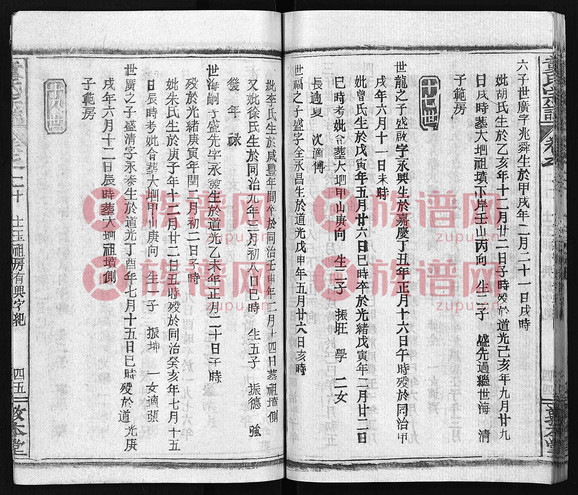 六子世廣字兆舜生於甲戌年二月二十一日戌時
妣胡氏生於乙亥年十二月廿二日子時歿於道光己亥年九月廿九
日戌時葬大垇祖墳下岸壬山丙向 生二子 盛先過繼世海 清
子範房
十八世
世龍之子盛啟字永興生於嘉慶丁丑年正月十六日午時歿於同治甲
戌年六月十一日未時
妣曾氏生於戊寅年五月廿六日巳時卒於光緒戊寅年二月廿二日
巳時考妣合葬大垇甲山庚向 生二子 振班 學 二女
長適夏 次適傅
世福之子盛字全永昌生於道光戊申年五月廿六日亥時
妣李氏生於咸豐年間卒於同治壬申年二月十四日葬祖墳側
又妣徐氏生於同治元年三月初八日巳時 生五子 振德 強
發 年 祿
世海嗣子盛先字永藜生於道光乙未年正月二十日午時
歿於光緒庚寅年三月初二日
妣朱氏生於庚子年十二月廿二日丑時歿於同治癸亥年七月十五
日辰時考妣合葬大垇甲山庚向 生一子 振坤 一女適張
世廣之子盛清字永泰生於道光丁酉年七月十五日巳時歿於道光庚
戌年六月十二日辰時葬大垇祖墳側
子範房
士玉祖房有興字範
四五
敦本堂
族谱网
zupu.cn